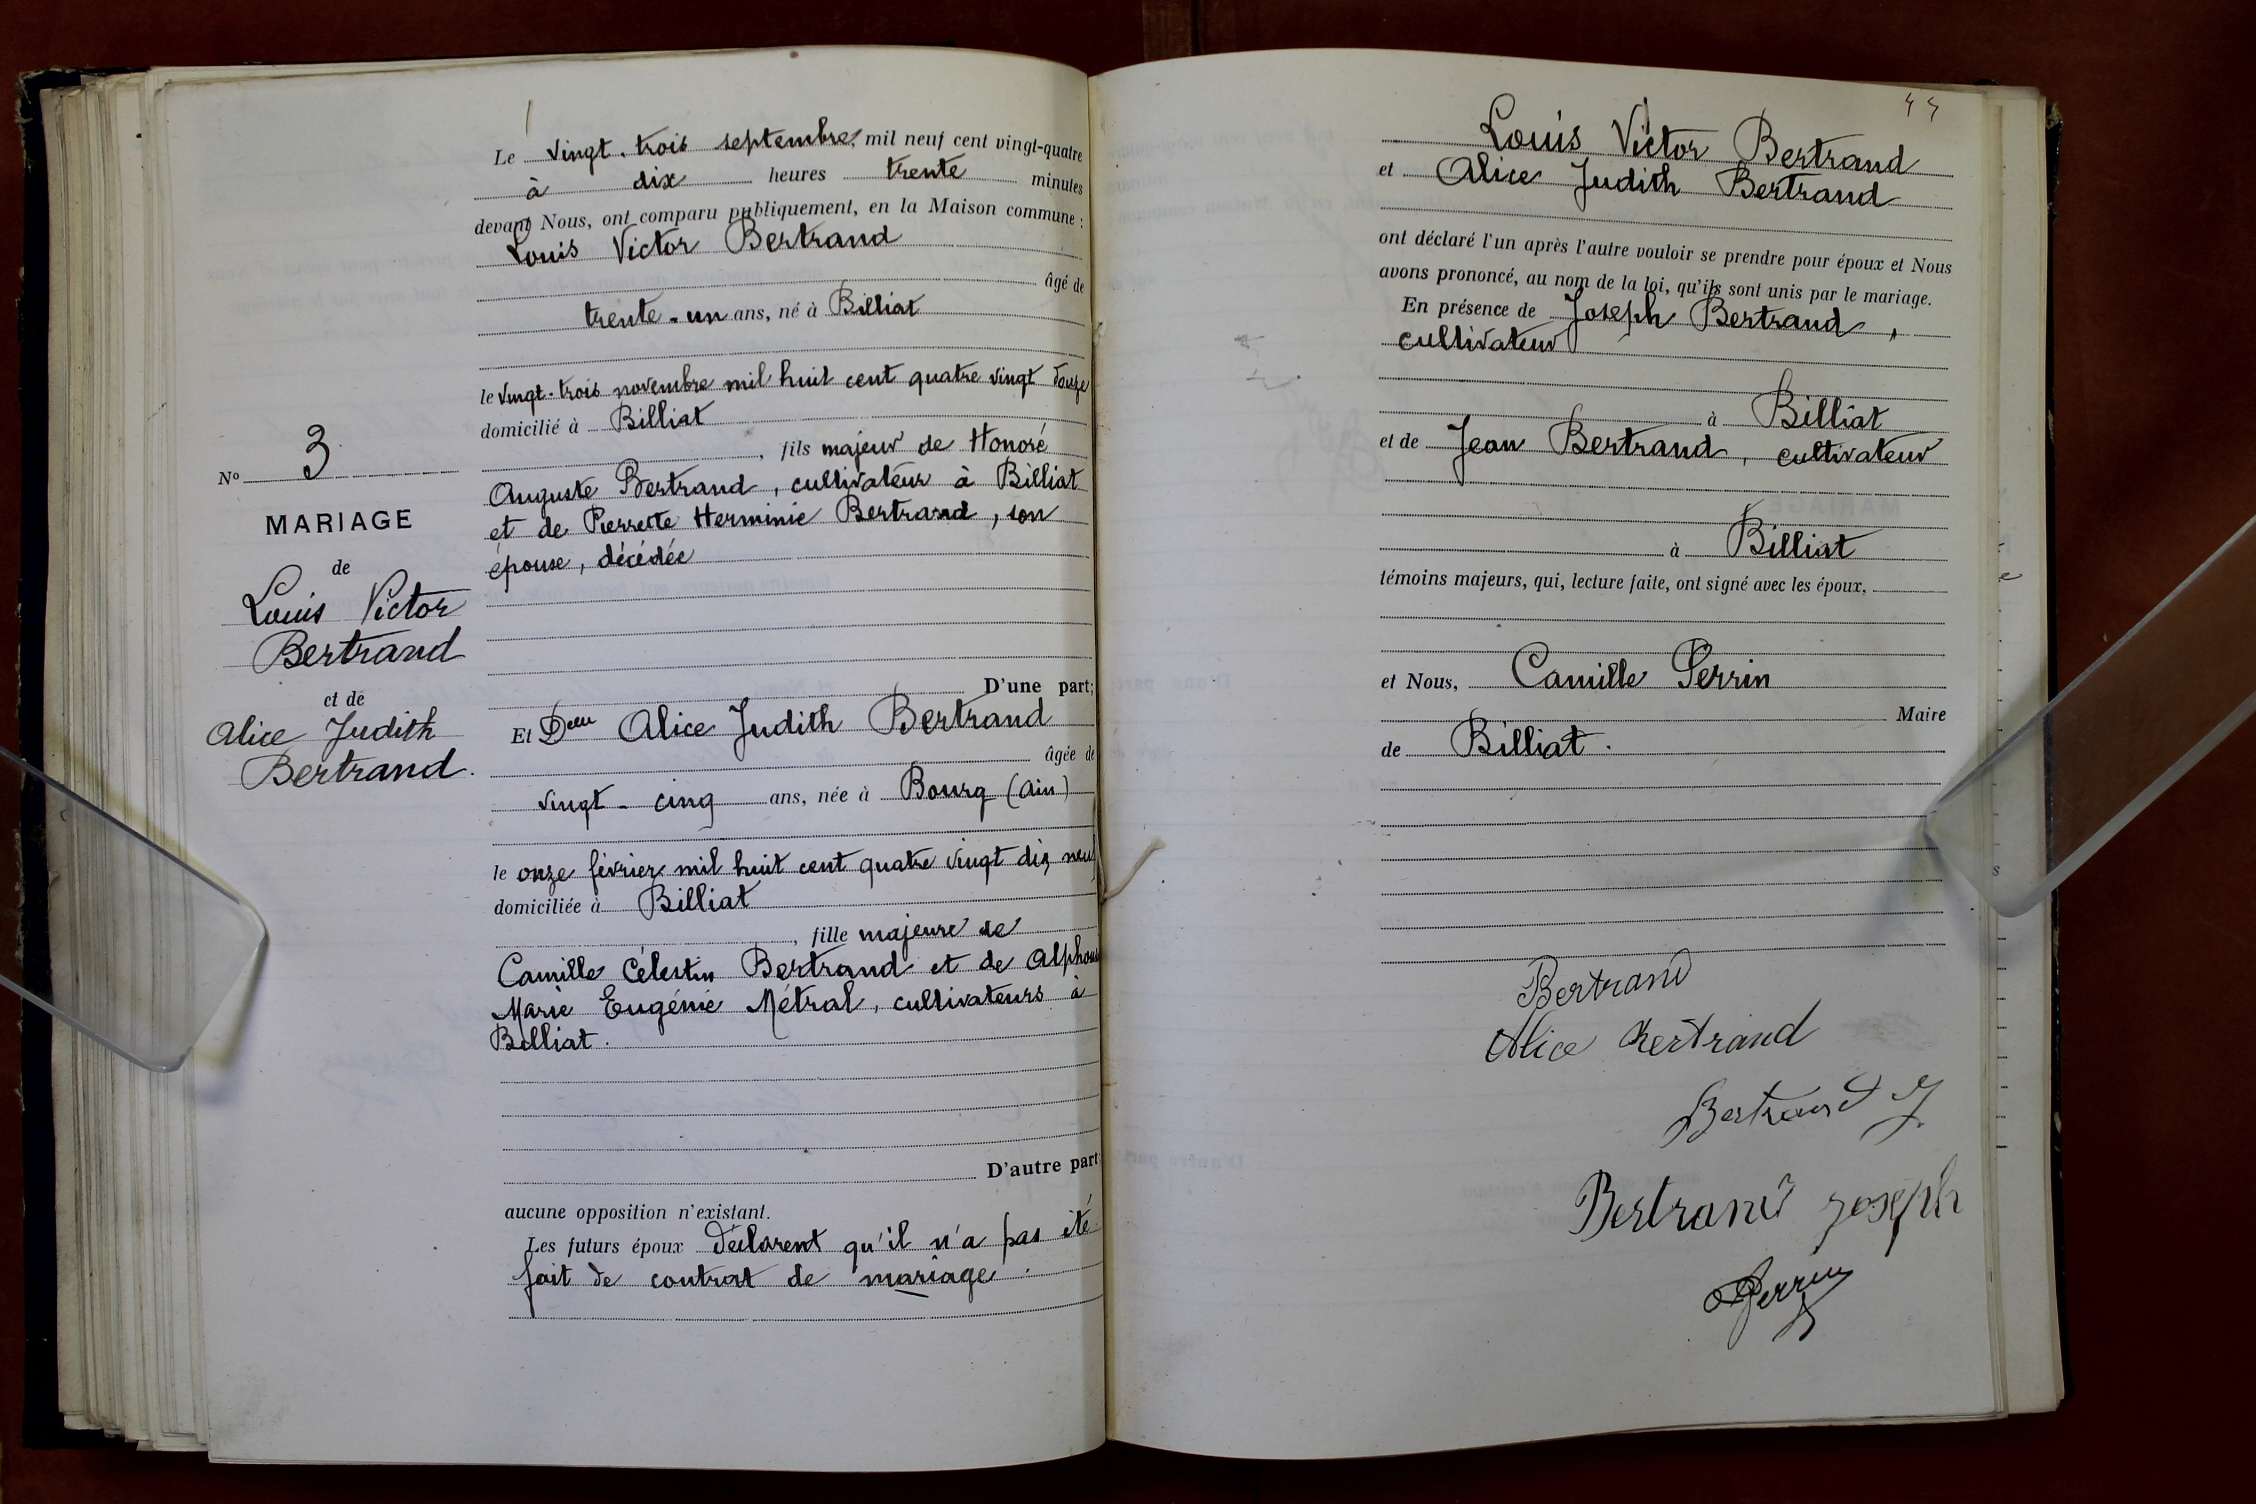 Le vingt-trois septembre mil neuf cent vingt-quatre
à dix heures trente minutes
devant Nous, ont comparu publiquement, en la Maison commune :
Louis Victor Bertrand
âgé de
trente-un ans, né à Billiat
le vingt-trois novembre mil huit cent quatre vingt douze
domicilié à Billiat
, fils majeur de Honoré
Auguste Bertrand, cultivateur à Billiat
et de Pierrette Herminie Bertrand, son
épouse, décédée
No 3
MARIAGE
de
Louis Victor
Bertrand
et de
Alice Judith
Bertrand.
D'une part;
Et Delle Alice Judith Bertrand
âgée de
vingt-cinq ans, née à Bourg (Ain)
le onze février mil huit cent quatre vingt dix neuf
domiciliée à Billiat
, fille majeure de
Camille Célestin Bertrand et de Alphons
Marie Eugénie Métral, cultivateurs à
Billiat.
D'autre part;
aucune opposition n'existant.
Les futurs époux déclarent qu'il n'a pas été
fait de contrat de mariage.
44
Louis Victor Bertrand
et Alice Judith Bertrand
ont déclaré l'un après l'autre vouloir se prendre pour époux et Nous
avons prononcé, au nom de la loi, qu'ils sont unis par le mariage.
En présence de Joseph Bertrand,
cultivateur
à Billiat
et de Jean Bertrand, cultivateur
à Billiat
témoins majeurs, qui, lecture faite, ont signé avec les époux,
et Nous, Camille Perrin
Maire
de Billiat.
Bertrand
Alice Bertrand
Bertrand J
Bertrand Joseph
Perrin